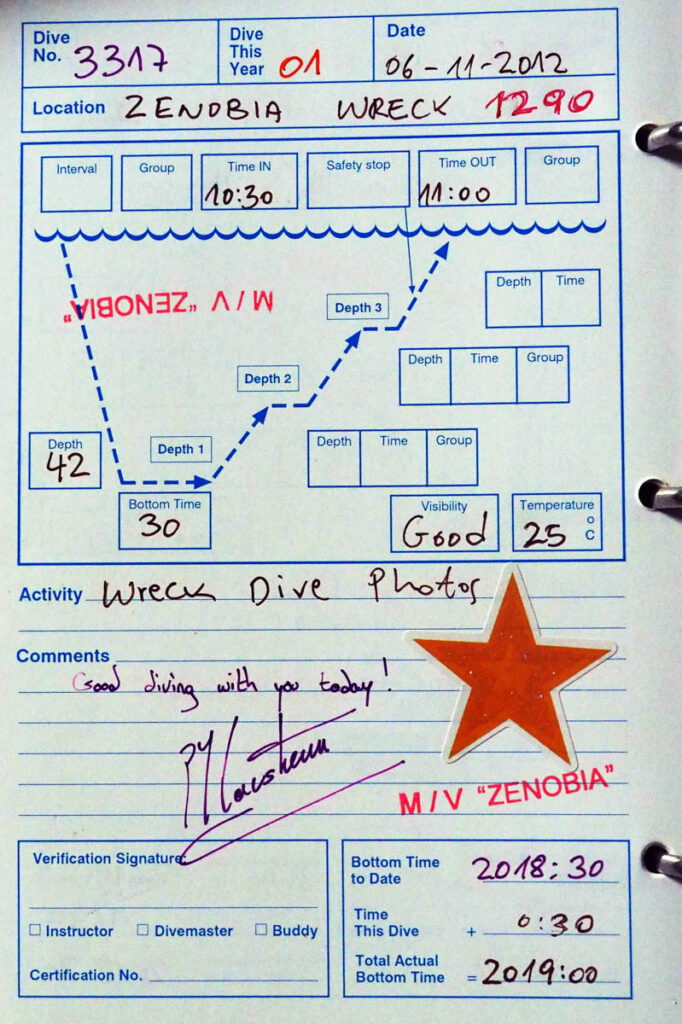 Dive No. 3317 Dive This Year 01 Date 06-11-2012
Location ZENOBIA WRECK 1290
Interval Group Time IN Safety stop Time OUT Group
10:30 11:00
M/V "ZENOBIA"
Depth Time
Depth 3
Depth Time Group
Depth 2
Depth Time Group
Depth 1
Depth
42
Bottom Time
30
Visibility
Good
Temperature
25 °C
Activity Wreck Dive Photos
Comments
Good diving with you today!
M/V "ZENOBIA"
Verification Signature:
Instructor Divemaster Buddy
Certification No.
Bottom Time to Date 2018:30
Time This Dive + 0:30
Total Actual Bottom Time = 2019:00